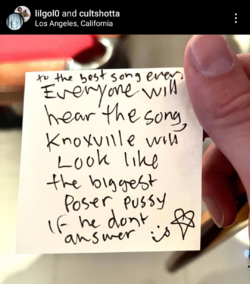 lilgol0 and cultshotta
Los Angeles, California
to the best song ever.
Everyone will
hear the song,
Knoxville will
Look like
the biggest
Poser pussy
if he dont
answer